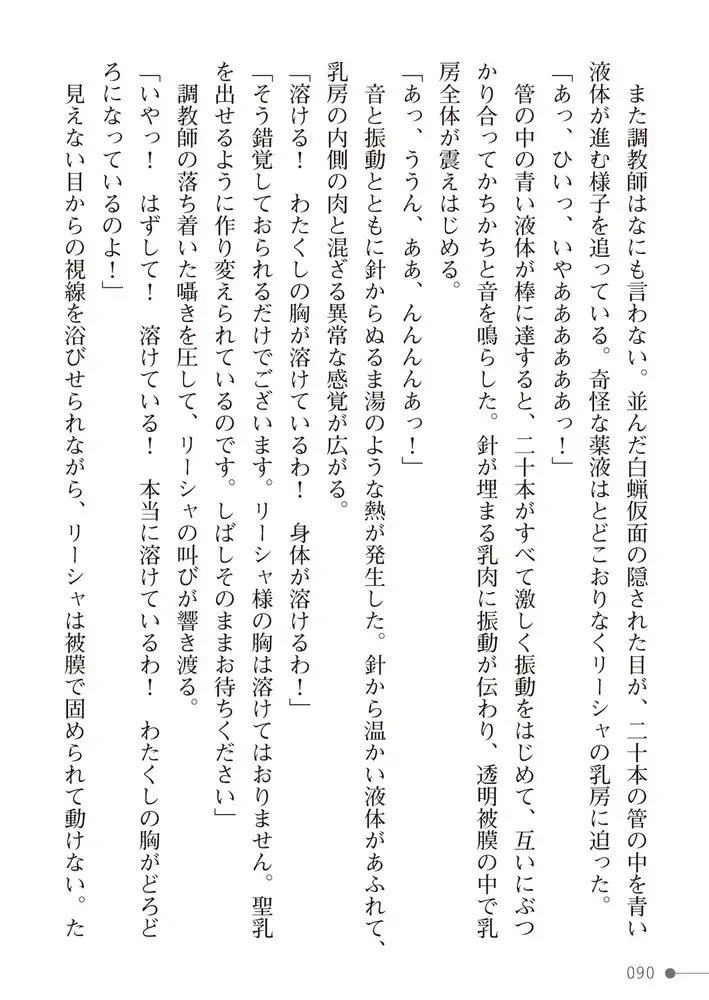 また調教師はなにも言わない。並んだ白蝋仮面の隠された目が、二十本の管の中を青い
液体が進む様子を追っている。奇怪な薬液はとどこおりなくリーシャの乳房に迫った。
「あっ、ひいっ、いやああああああっ！」
　管の中の青い液体が棒に達すると、二十本がすべて激しく振動をはじめて、互いにぶつ
かり合ってかちかちと音を鳴らした。針が埋まる乳肉に振動が伝わり、透明被膜の中で乳
房全体が震えはじめる。
「あっ、ううん、ああ、んんんんあっ！」
　音と振動とともに針からぬるま湯のような熱が発生した。針から温かい液体があふれて、
乳房の内側の肉と混ざる異常な感覚が広がる。
「溶ける！　わたくしの胸が溶けているわ！　身体が溶けるわ！」
「そう錯覚しておられるだけでございます。リーシャ様の胸は溶けてはおりません。聖乳
を出せるように作り変えられているのです。しばしそのままお待ちください」
　調教師の落ち着いた囁きを圧して、リーシャの叫びが響き渡る。
「いやっ！　はずして！　溶けている！　本当に溶けているわ！　わたくしの胸がどろど
ろになっているのよ！」
　見えない目からの視線を浴びせられながら、リーシャは被膜で固められて動けない。た
090